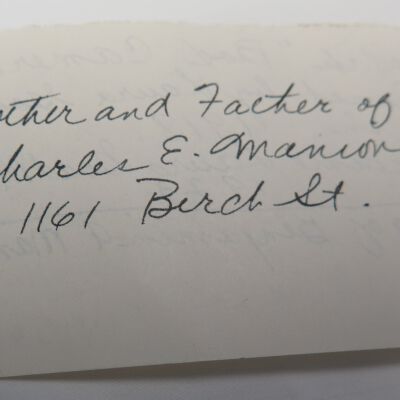 other and Father of
Charles E. Manion
1161 Birch St.